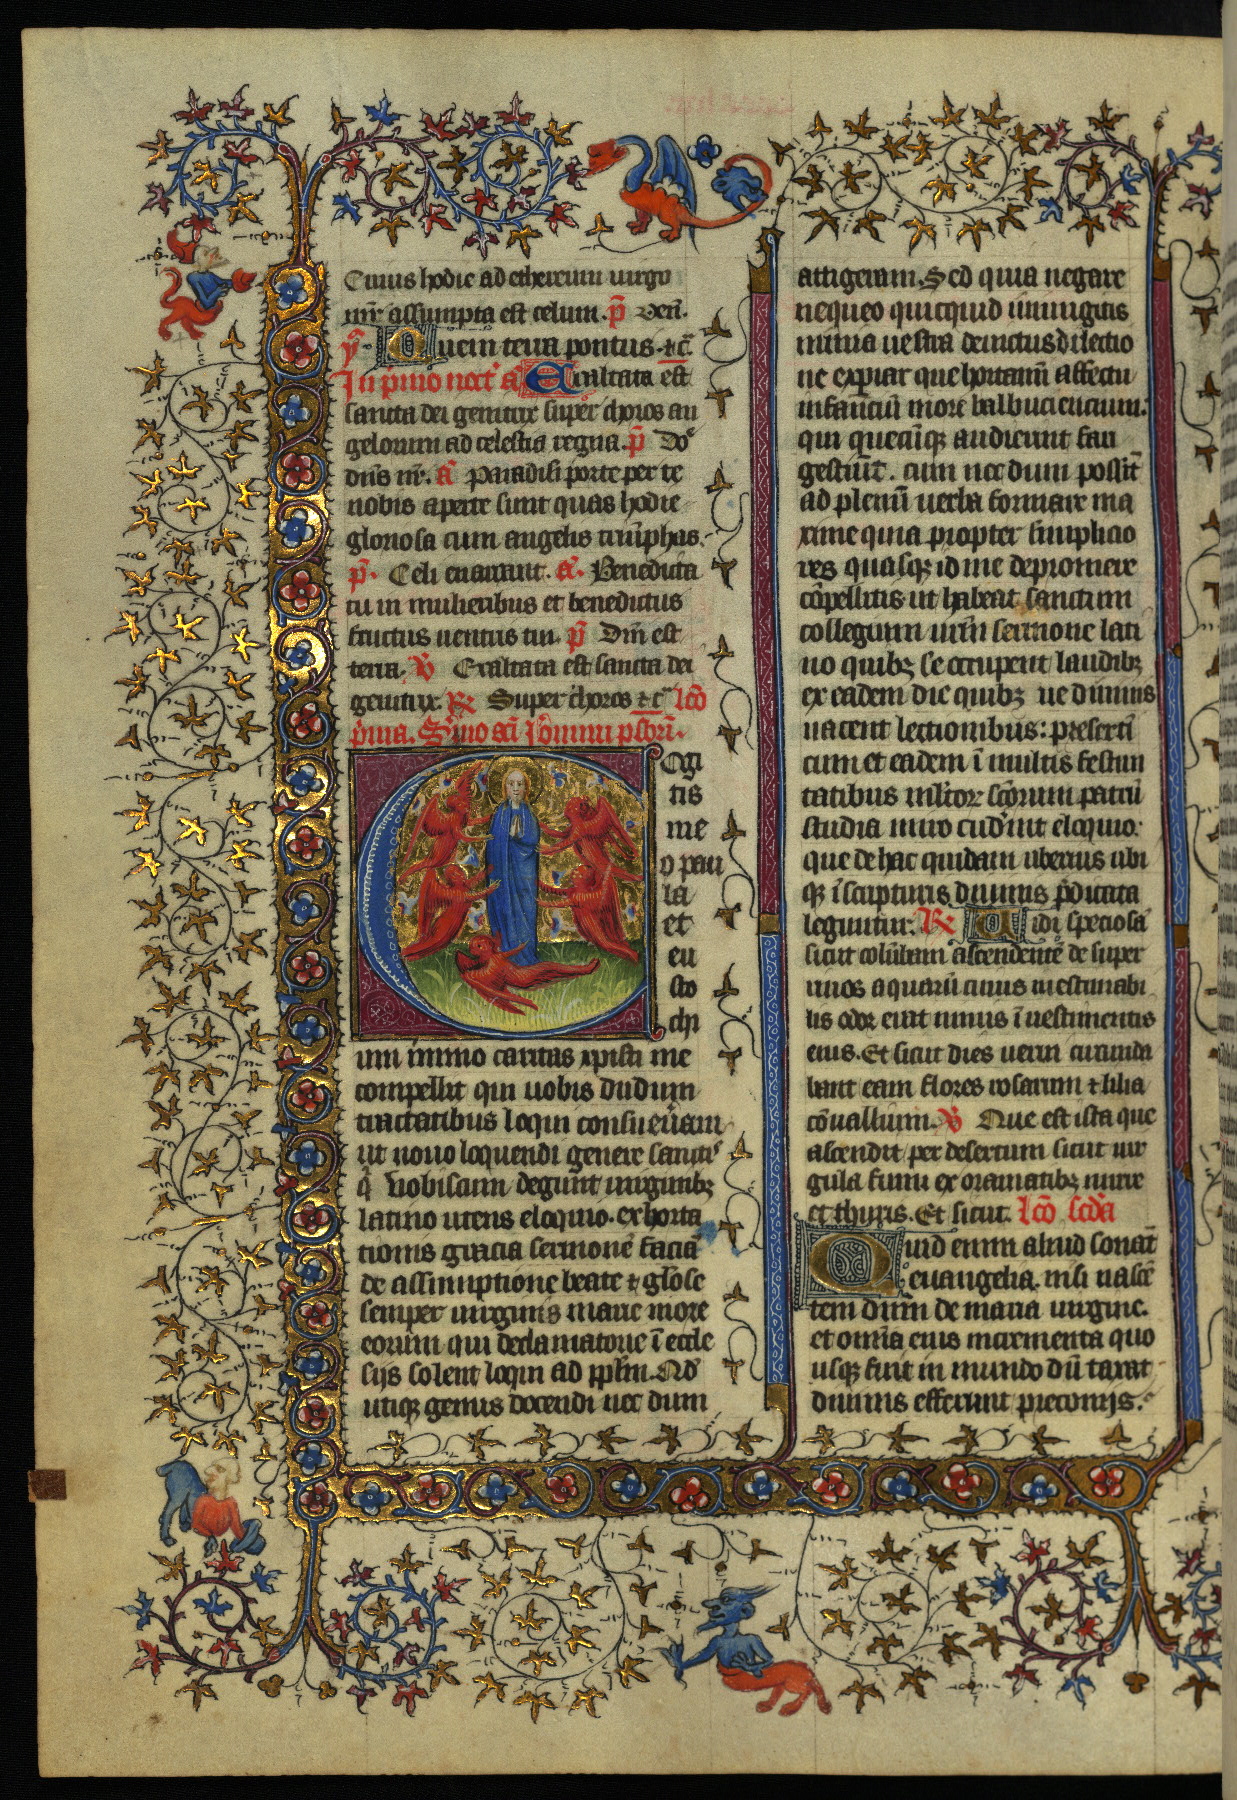 Cuius hodie ad ethereum uirgo
mr̄ assumpta est celum. p̄s Ven̄.
ẏ Quem terra pontus ⁊ c̄
In p̄mo noct̄ a͞ Exaltata est
sancta dei genitrix super choros an
gelorum ad celestia regna. p̄s Do
dn̄s nr̄. a͞ Paradisi porte per te
nobis aperte sunt quas hodie
gloriosa cum angelis triūphas.
p̄s. Celi enarrant. a͞. Benedicta
tu in mulieribus et benedictus
fructus uentris tui. p̄s Dm̄ est
terra. ꝟ Exaltata est sancta dei
genitrix. ℟ Super choros ⁊ c̄ lc̄o
p̄ma. Sermo sc̄i Ieronimi p̄sb̄ri.
Cogi
tis
me
o pau
la
et
eu
sto
chi
um immo caritas xp̄isti me
compellit qui uobis dudum
tractatibus loqui consueueram
ut nouo loquendi genere sanctis
q̄ uobiscum degunt uirginibꝫ
latino utens eloquio. exhorta
tionis gracia sermonē faciā
de assumptione beate ⁊ glōse
semper uirginis marie more
eorum qui declamatorie ī eccle
sijs solent loqui ad pp̄lm. Qd̄
utiqꝫ genus docendi nec dum
attigeram. Sed quia negare
nequeo quicquid iniungitis
nimia uestra deuictus dilectio
ne expiar que hortamī affectu
infanciū more balbuciencium.
qui quecūqꝫ audierint fari
gestiūt. cum nec dum possīt
ad plenū uerba formare ma
xime quia propter simplicio
res quasqꝫ id me depromere
cōpellitis ut habeat sanctum
collegium ur̄m sermone lati
no quibꝫ se occupent laudibꝫ
ex eadem die quibꝫ ue diuinis
uacent lectionibus: presertī
cum et eadem ī multis festiui
tatibus
studia
que de hac quidam uberius ubi
qꝫ ī scripturis diuinis p̄dicata
leguntur. ℟ Uidi speciosā
sicut colūbam ascendentē de super
riuos aquarū cuius inestimabi
lis odor erat nimis ī uestimentis
eius. Et sicut dies uerni circunda
bant eam flores rosarum ⁊ lilia
cōuallium. ꝟ Que est ista que
ascendit per desertum sicut uir
gula fumi ex aromatibꝫ mirre
et thuris. Et sicut. lc̄o scd̄a
Quid enim aliud sonāt
euangelia. nisi nascē
tem dnm de maria uirgine.
et omīa eius incrementa quo
usqꝫ fuit in mundo dū taxat
diuinis efferunt preconijs.